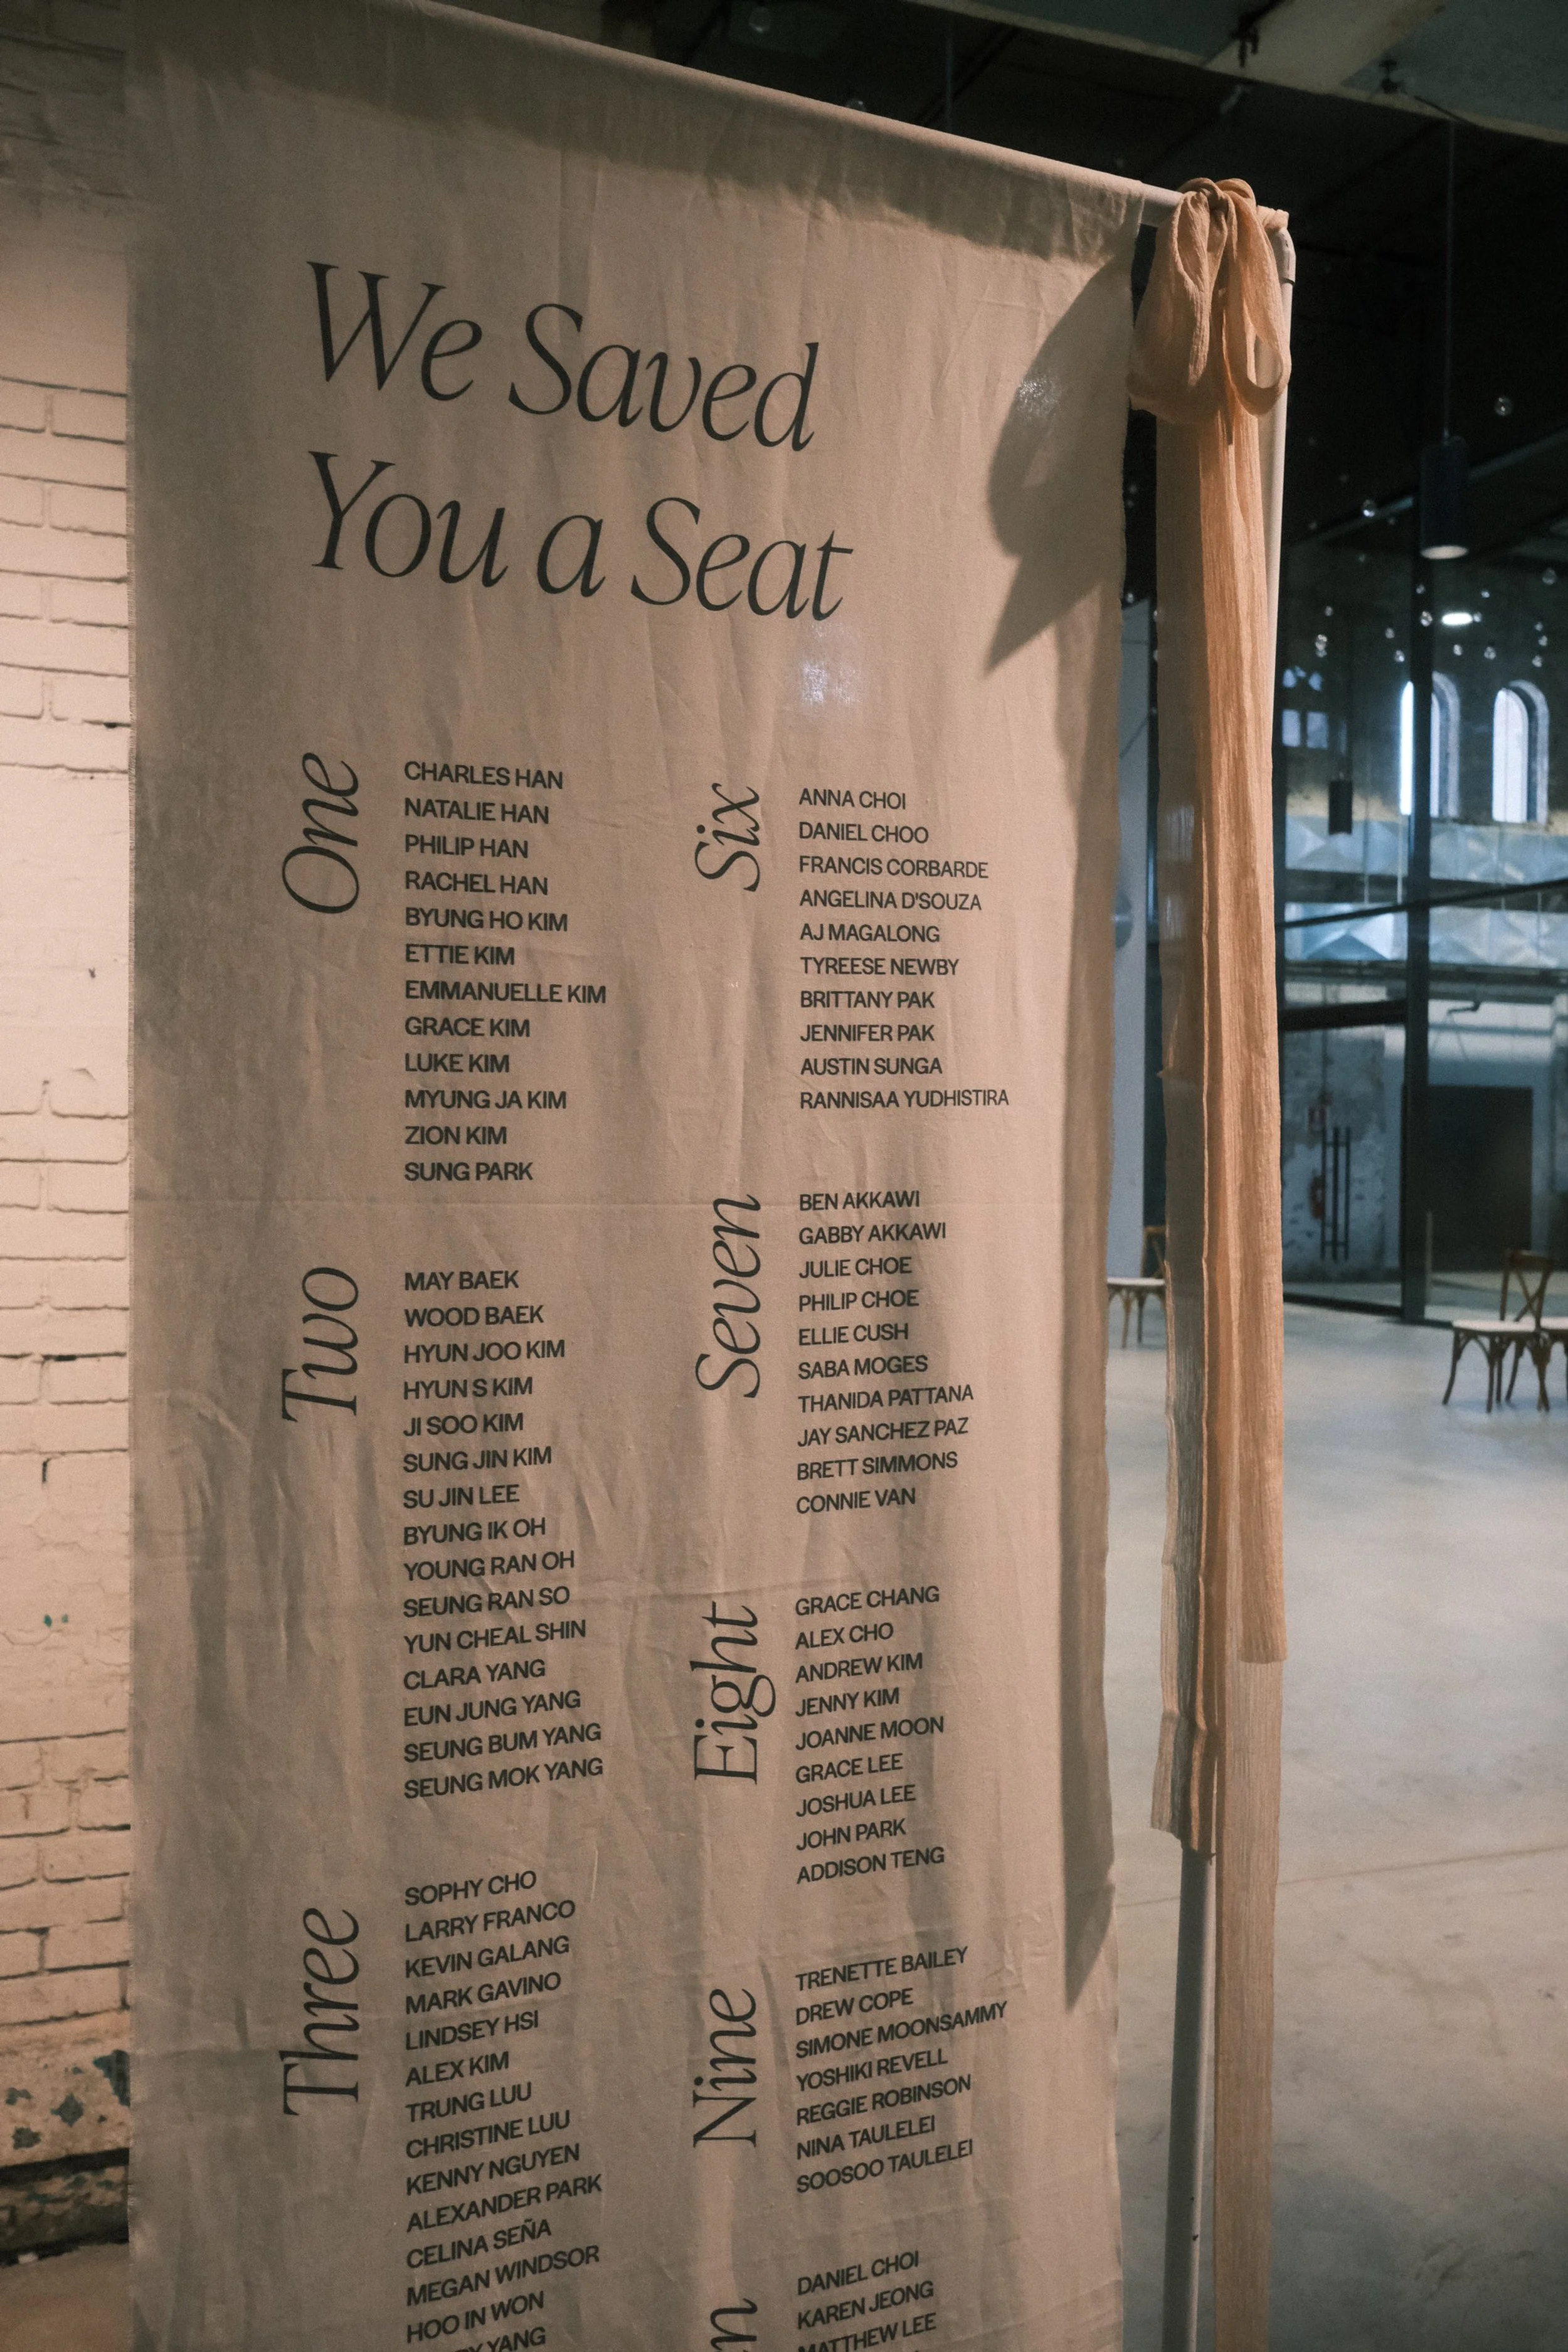 We Saved
You a Seat
One
CHARLES HAN
NATALIE HAN
PHILIP HAN
RACHEL HAN
BYUNG HO KIM
ETTIE KIM
EMMANUELLE KIM
GRACE KIM
LUKE KIM
MYUNG JA KIM
ZION KIM
SUNG PARK
Two
MAY BAEK
WOOD BAEK
HYUN JOO KIM
HYUN S KIM
JI SOO KIM
SUNG JIN KIM
SU JIN LEE
BYUNG IK OH
YOUNG RAN OH
SEUNG RAN SO
YUN CHEAL SHIN
CLARA YANG
EUN JUNG YANG
SEUNG BUM YANG
SEUNG MOK YANG
Three
SOPHY CHO
LARRY FRANCO
KEVIN GALANG
MARK GAVINO
LINDSEY HSI
ALEX KIM
TRUNG LUU
CHRISTINE LUU
KENNY NGUYEN
ALEXANDER PARK
CELINA SEÑA
MEGAN WINDSOR
HOO IN WON
YANG
Six
ANNA CHOI
DANIEL CHOO
FRANCIS CORBARDE
ANGELINA D'SOUZA
AJ MAGALONG
TYREESE NEWBY
BRITTANY PAK
JENNIFER PAK
AUSTIN SUNGA
RANNISAA YUDHISTIRA
Seven
BEN AKKAWI
GABBY AKKAWI
JULIE CHOE
PHILIP CHOE
ELLIE CUSH
SABA MOGES
THANIDA PATTANA
JAY SANCHEZ PAZ
BRETT SIMMONS
CONNIE VAN
Eight
GRACE CHANG
ALEX CHO
ANDREW KIM
JENNY KIM
JOANNE MOON
GRACE LEE
JOSHUA LEE
JOHN PARK
ADDISON TENG
Nine
TRENETTE BAILEY
DREW COPE
SIMONE MOONSAMMY
YOSHIKI REVELL
REGGIE ROBINSON
NINA TAULELEI
SOOSOO TAULELEI
DANIEL CHOI
KAREN JEONG
MATTHEW LEE